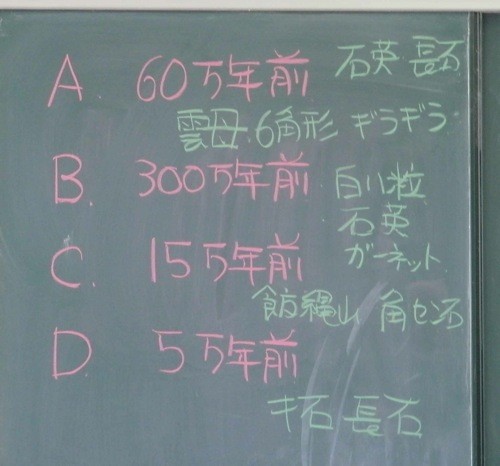 A. 60万年前 石英 長石
雲母 6角形 ギラギラ
B. 300万年前 白い粒
石英
C. 15万年前 ガーネット
飯縄山 角セン石
D. 5万年前
キ石 長石